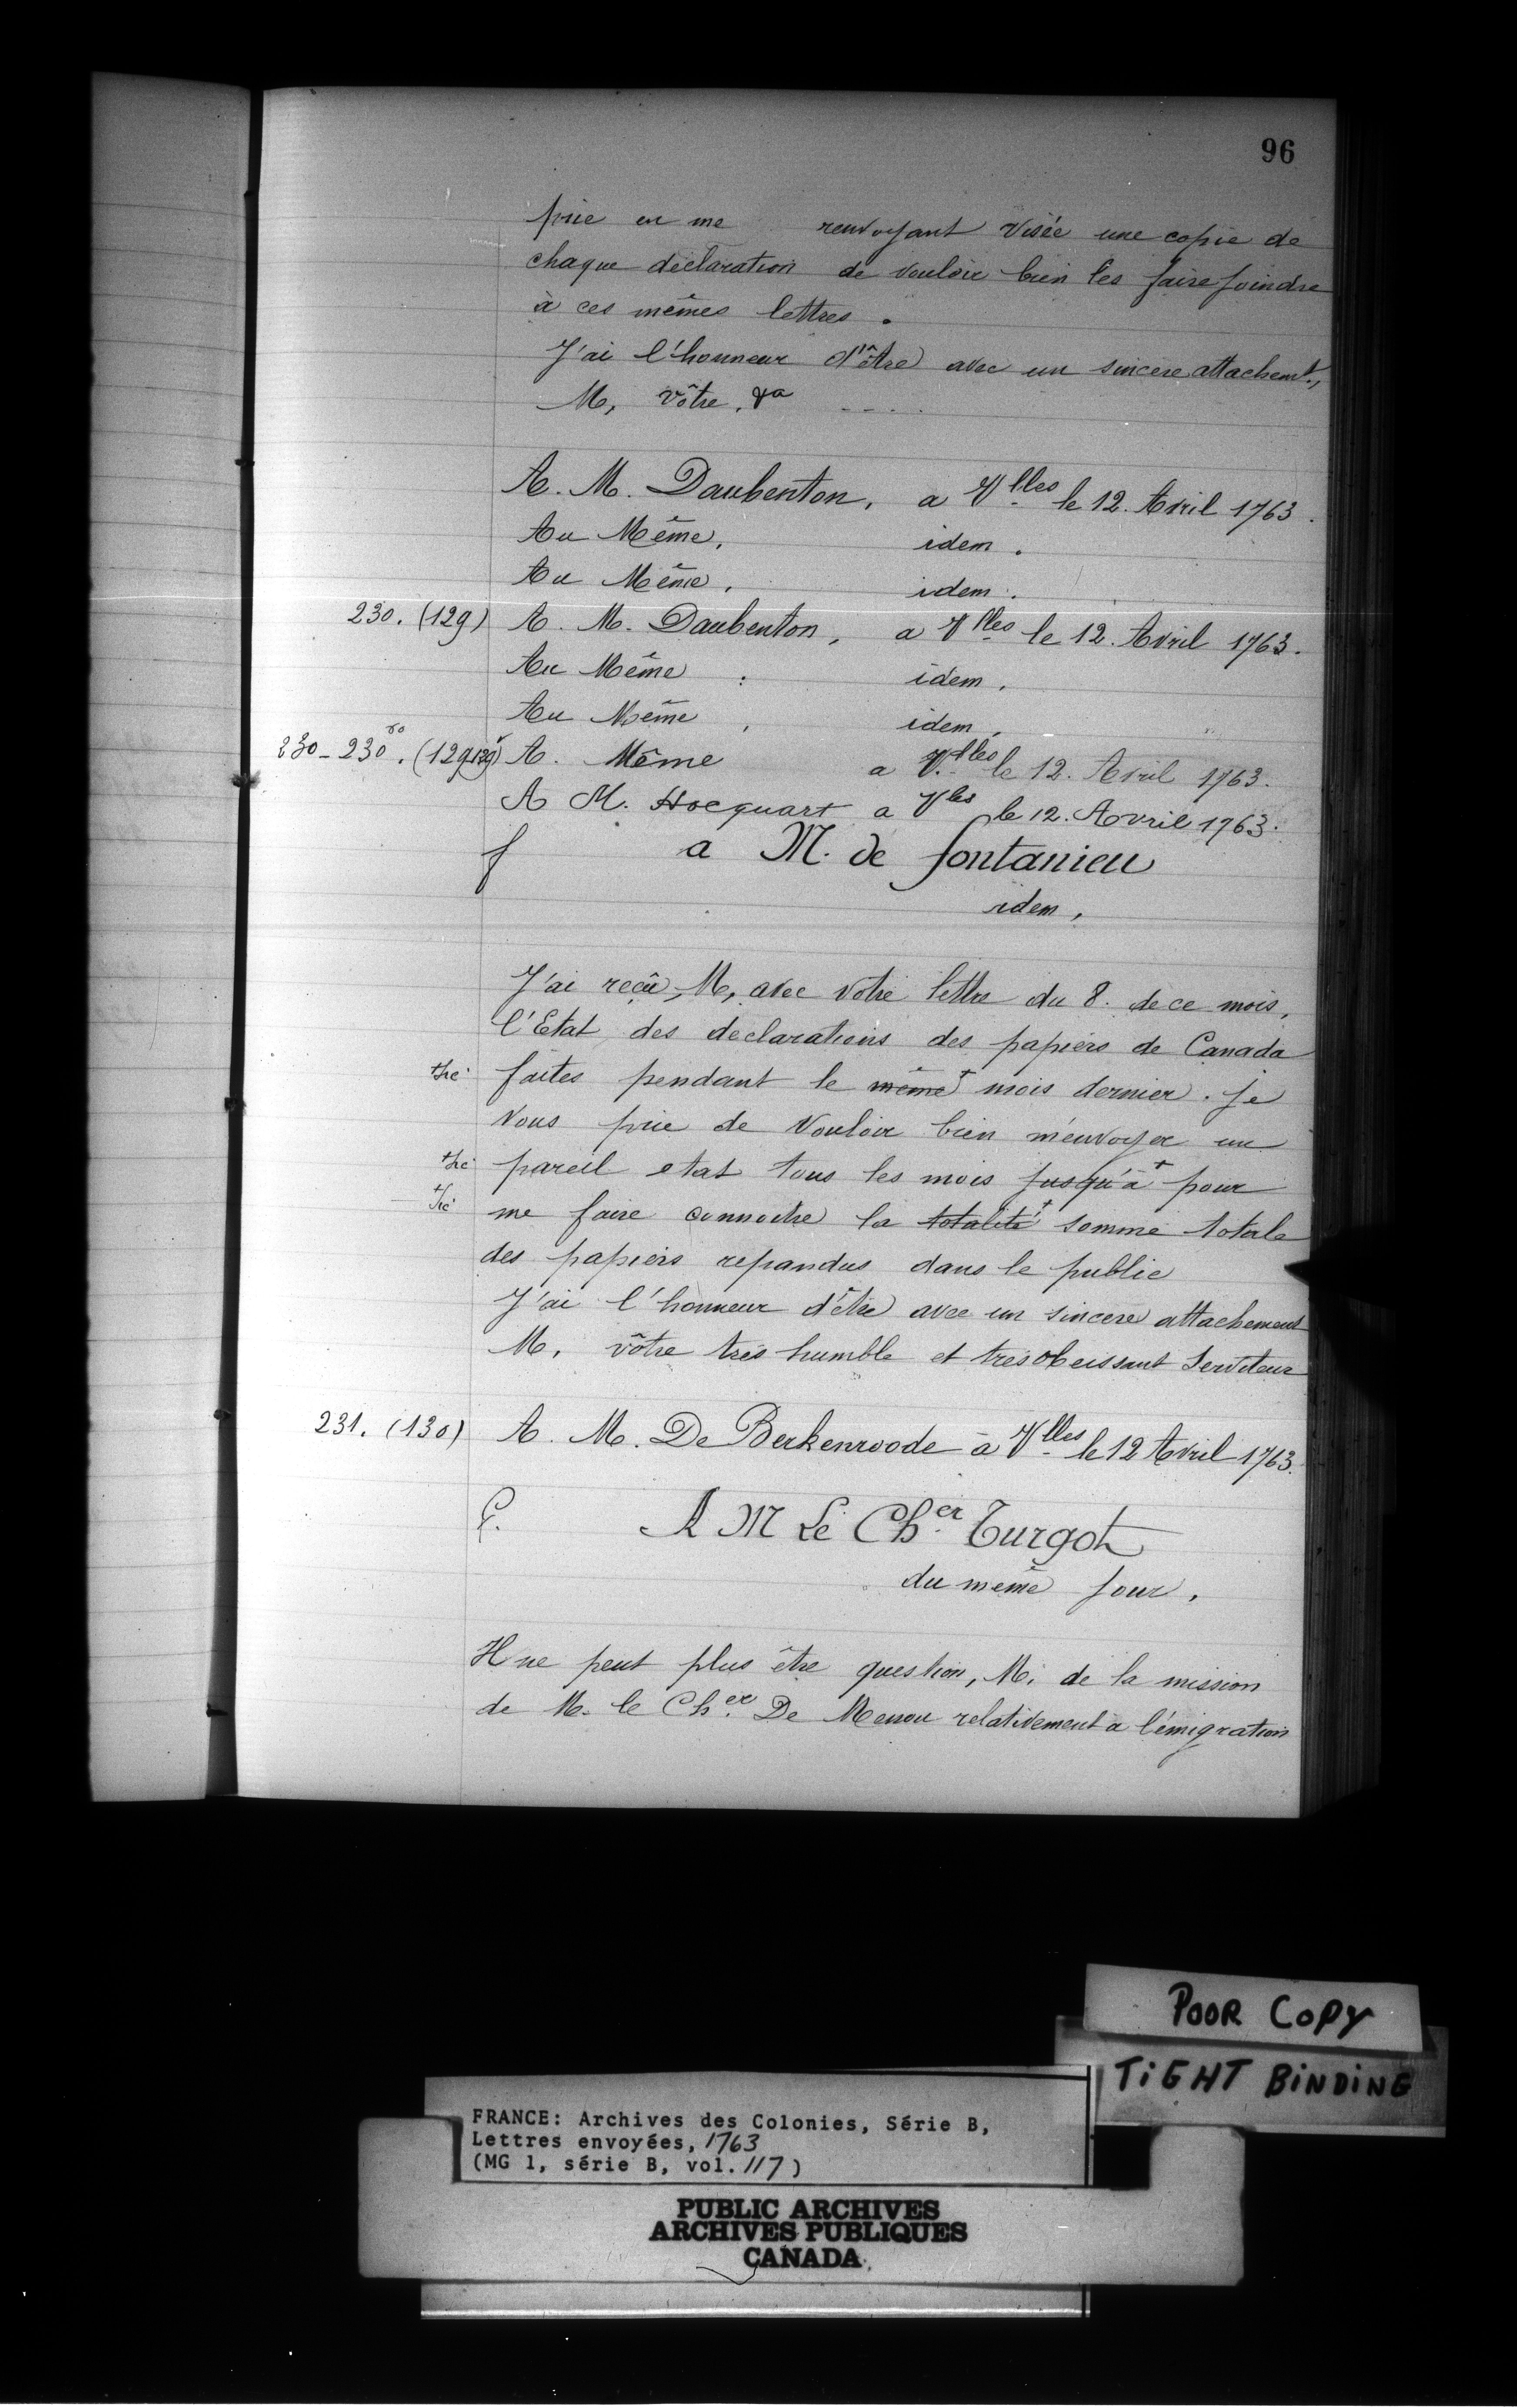 96
prie en me renvoyant visée une copie de
chaque déclaration de vouloir bien les faire joindre
à ces mêmes lettres.
J'ai l'honneur d'être avec un sincere attachemt.,
M, vôtre, &a ----
A. M. Daubenton, a Vlles le 12. Avril 1763.
Au Même, idem.
Au Même, idem.
230. (129) A. M. Daubenton, a Vlles le 12. Avril 1763.
Au Même : idem,
Au Même, idem,
230-230 vo. (129-129v) A. Même a V.lles le 12. Avril 1763.
A M. Hocquart a Vles le 12. Avril 1763.
f a M. de fontanieu
idem,
J'ai reçû, M, avec votre lettre du 8. de ce mois,
l'Etat des declarations des papiers de Canada
faites pendant le même + mois dernier. je
vous prie de vouloir bien m'envoyer un
pareil etat tous les mois jusqu'à + pour
me faire connoitre la totalité + somme totale
des papiers repandus dans le public
J'ai l'honneur d'être avec un sincere attachement
M, vôtre tres humble et tres obeissant Serviteur
231. (130) A. M. De Berkenroode a Vlles le 12 Avril 1763.
A M Le Cher Turgot
du même jour,
Il ne peut plus être question, M, de la mission
de M. le Cher De Menou relativement a l'émigration
POOR COPY
TIGHT BINDING
FRANCE: Archives des Colonies, Série B,
Lettres envoyées, 1763
(MG 1, série B, vol. 117)
PUBLIC ARCHIVES
ARCHIVES PUBLIQUES
CANADA